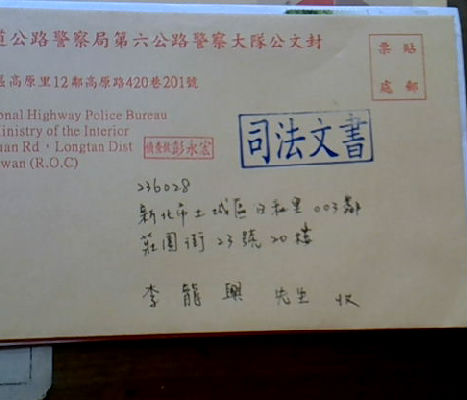 道公路警察局第六公路警察大隊公文封
區高原里12鄰高原路420巷201號
onal Highway Police Bureau
Ministry of the Interior
uan Rd，Longtan Dist
wan (R.O.C)
偵查佐彭永宏
貼票
郵處
司法文書
236028
新北市土城區日和里003鄰
莊園街23號20樓
李龍興 先生 收